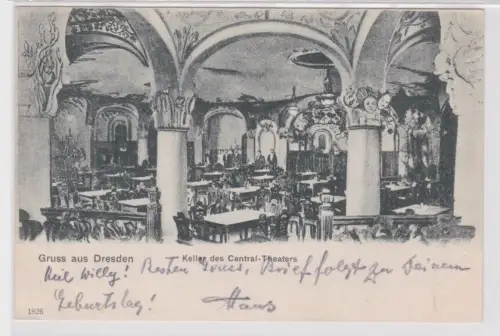 Gruss aus Dresden Keller des Central-Theaters
Heil Willy! Besten Gruss, Brief folgt zu Deinem
Geburtstag! Hans
1826